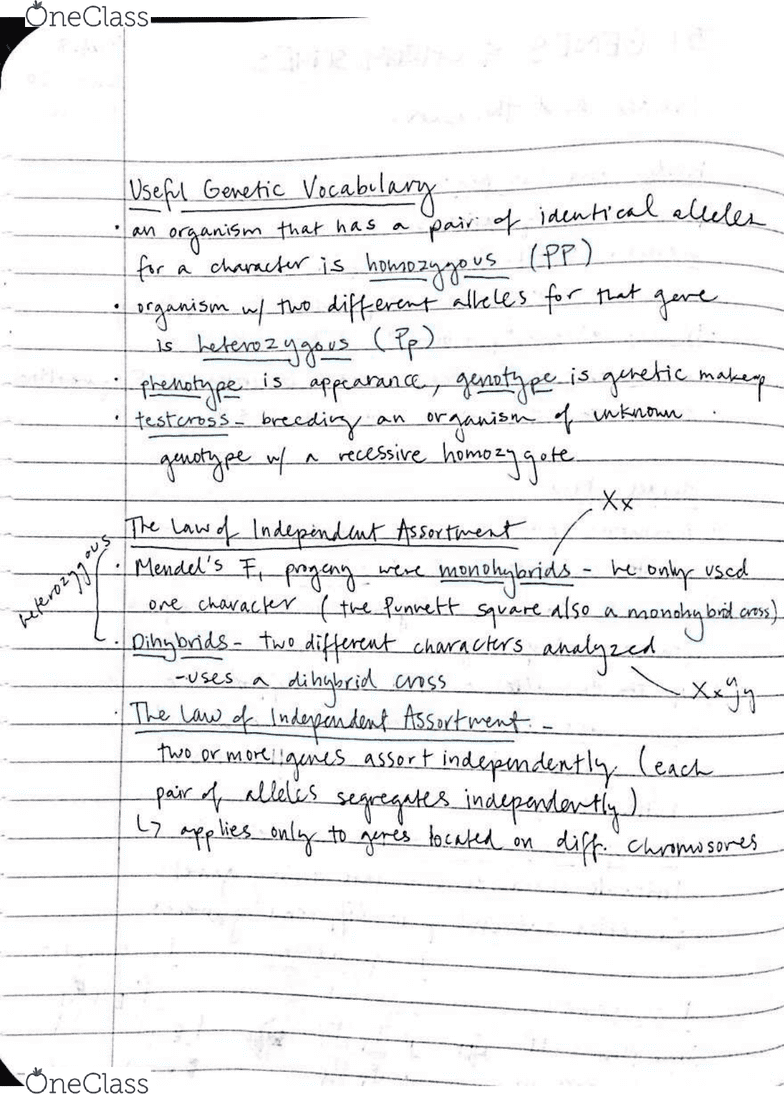 OneClass
Useful Genetic Vocabulary
• an organism that has a pair of identical alleles
for a character is homozygous (PP)
• organism w/ two different alleles for that gene
is heterozygous (Pp)
• phenotype is appearance, genotype is genetic makeup
• testcross - breeding an organism of unknown
genotype w/ a recessive homozygote
Xx
The Law of Independent Assortment
heterozygous
• Mendel's F₁ progeny were monohybrids - he only used
one character (the Punnett square also a monohybrid cross)
• Dihybrids - two different characters analyzed
-uses a dihybrid cross
XxYy
• The Law of Independent Assortment: -
two or more genes assort independently (each
pair of alleles segregates independently)
↳ applies only to genes located on diff. chromosomes
OneClass